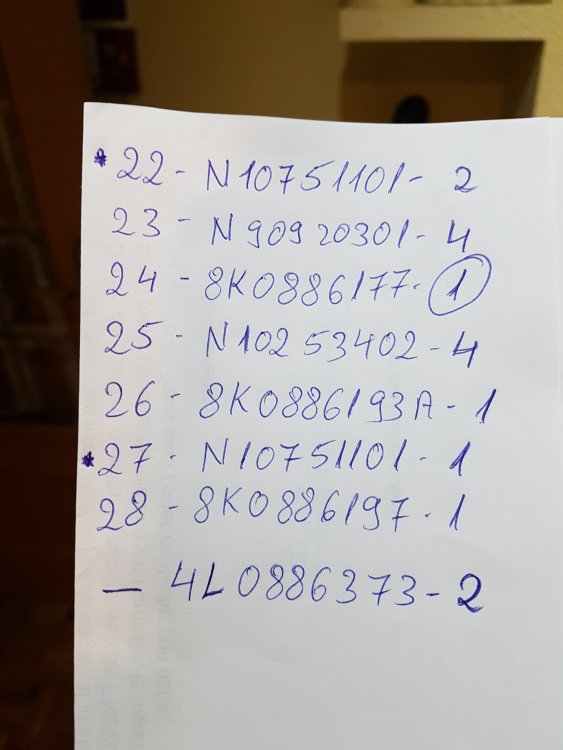 * 22 - N10751101 - 2
23 - N90920301 - 4
24 - 8K0886177 - 1
25 - N10253402 - 4
26 - 8K0886193A - 1
* 27 - N10751101 - 1
28 - 8K0886197 - 1
— 4L0886373 - 2